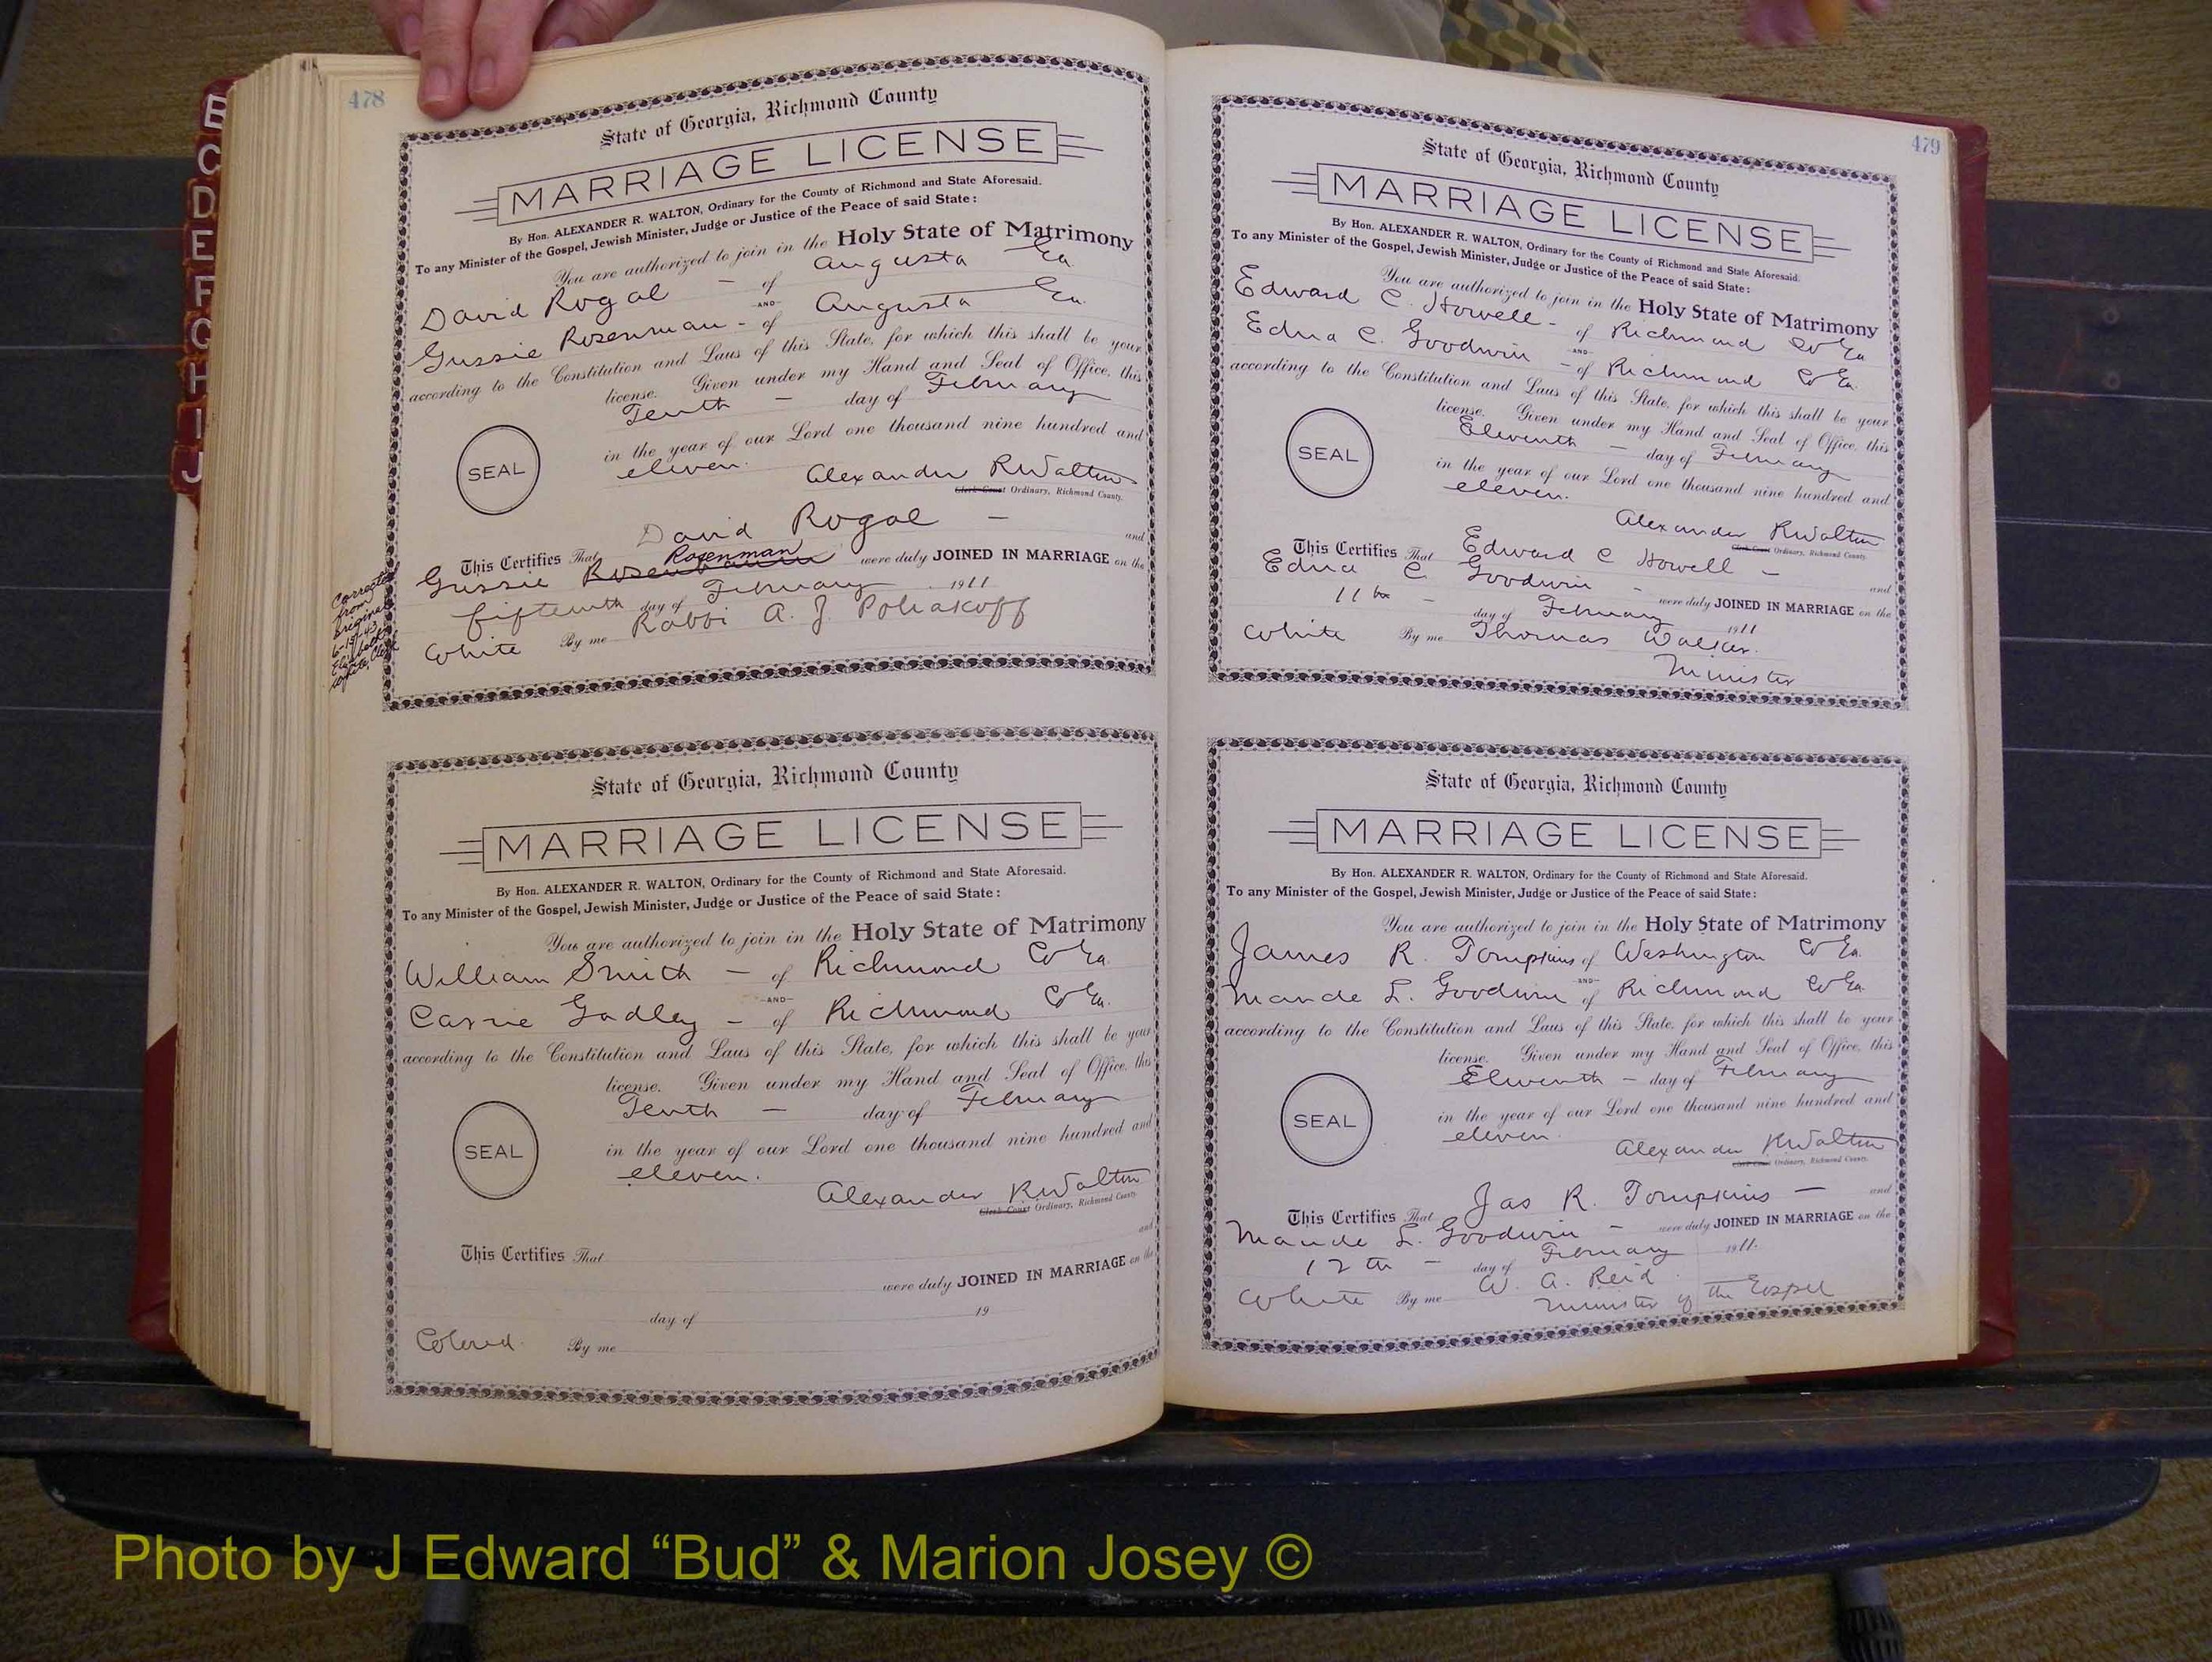 B
C
D
E
F
G
H
I
J
478
State of Georgia, Richmond County
MARRIAGE LICENSE
By Hon. ALEXANDER R. WALTON, Ordinary for the County of Richmond and State Aforesaid.
To any Minister of the Gospel, Jewish Minister, Judge or Justice of the Peace of said State:
You are authorized to join in the Holy State of Matrimony
David Rogol - of Augusta Ga.
-AND-
Gussie Rosenman - of Augusta Ga.
according to the Constitution and Laws of this State, for which this shall be your
license. Given under my Hand and Seal of Office, this
Tenth - day of February
SEAL
in the year of our Lord one thousand nine hundred and
eleven.
Alexander R Walton
Clerk Court Ordinary, Richmond County.
David Rogol - and
This Certifies That
Rosenman
Gussie Rosenbaum were duly JOINED IN MARRIAGE on the
fifteenth day of February 1911
White By me Rabbi A. J. Poliakoff
Corrected
from
original
6-15-43
State of Georgia, Richmond County
MARRIAGE LICENSE
By Hon. ALEXANDER R. WALTON, Ordinary for the County of Richmond and State Aforesaid.
To any Minister of the Gospel, Jewish Minister, Judge or Justice of the Peace of said State:
You are authorized to join in the Holy State of Matrimony
William Smith - of Richmond Co Ga.
-AND-
Carrie Gadley - of Richmond Co Ga.
according to the Constitution and Laws of this State, for which this shall be your
license. Given under my Hand and Seal of Office, this
Tenth - day of February
SEAL
in the year of our Lord one thousand nine hundred and
eleven.
Alexander R Walton
Clerk Court Ordinary, Richmond County.
and
This Certifies That
were duly JOINED IN MARRIAGE on the
day of 19
Colored. By me
479
State of Georgia, Richmond County
MARRIAGE LICENSE
By Hon. ALEXANDER R. WALTON, Ordinary for the County of Richmond and State Aforesaid.
To any Minister of the Gospel, Jewish Minister, Judge or Justice of the Peace of said State:
You are authorized to join in the Holy State of Matrimony
Edward C. Howell - of Richmond Co Ga
-AND-
Edna C. Goodwin - of Richmond Co Ga.
according to the Constitution and Laws of this State, for which this shall be your
license. Given under my Hand and Seal of Office, this
Eleventh - day of February
SEAL
in the year of our Lord one thousand nine hundred and
eleven.
Alexander R Walton
Clerk Court Ordinary, Richmond County.
This Certifies That Edward C Howell - and
Edna C Goodwin - were duly JOINED IN MARRIAGE on the
11th - day of February 1911
White By me Thomas Walker.
Minister
State of Georgia, Richmond County
MARRIAGE LICENSE
By Hon. ALEXANDER R. WALTON, Ordinary for the County of Richmond and State Aforesaid.
To any Minister of the Gospel, Jewish Minister, Judge or Justice of the Peace of said State:
You are authorized to join in the Holy State of Matrimony
James R. Tompkins of Washington Co Ga.
-AND-
Maude L. Goodwin of Richmond Co Ga.
according to the Constitution and Laws of this State, for which this shall be your
license. Given under my Hand and Seal of Office, this
Eleventh - day of February
SEAL
in the year of our Lord one thousand nine hundred and
eleven.
Alexander R Walton
Clerk Court Ordinary, Richmond County.
This Certifies That Jas R. Tompkins - and
Maude L. Goodwin - were duly JOINED IN MARRIAGE on the
12th - day of February 1911.
White By me W. A. Reid
Minister of the Gospel
Photo by J Edward “Bud” & Marion Josey ©